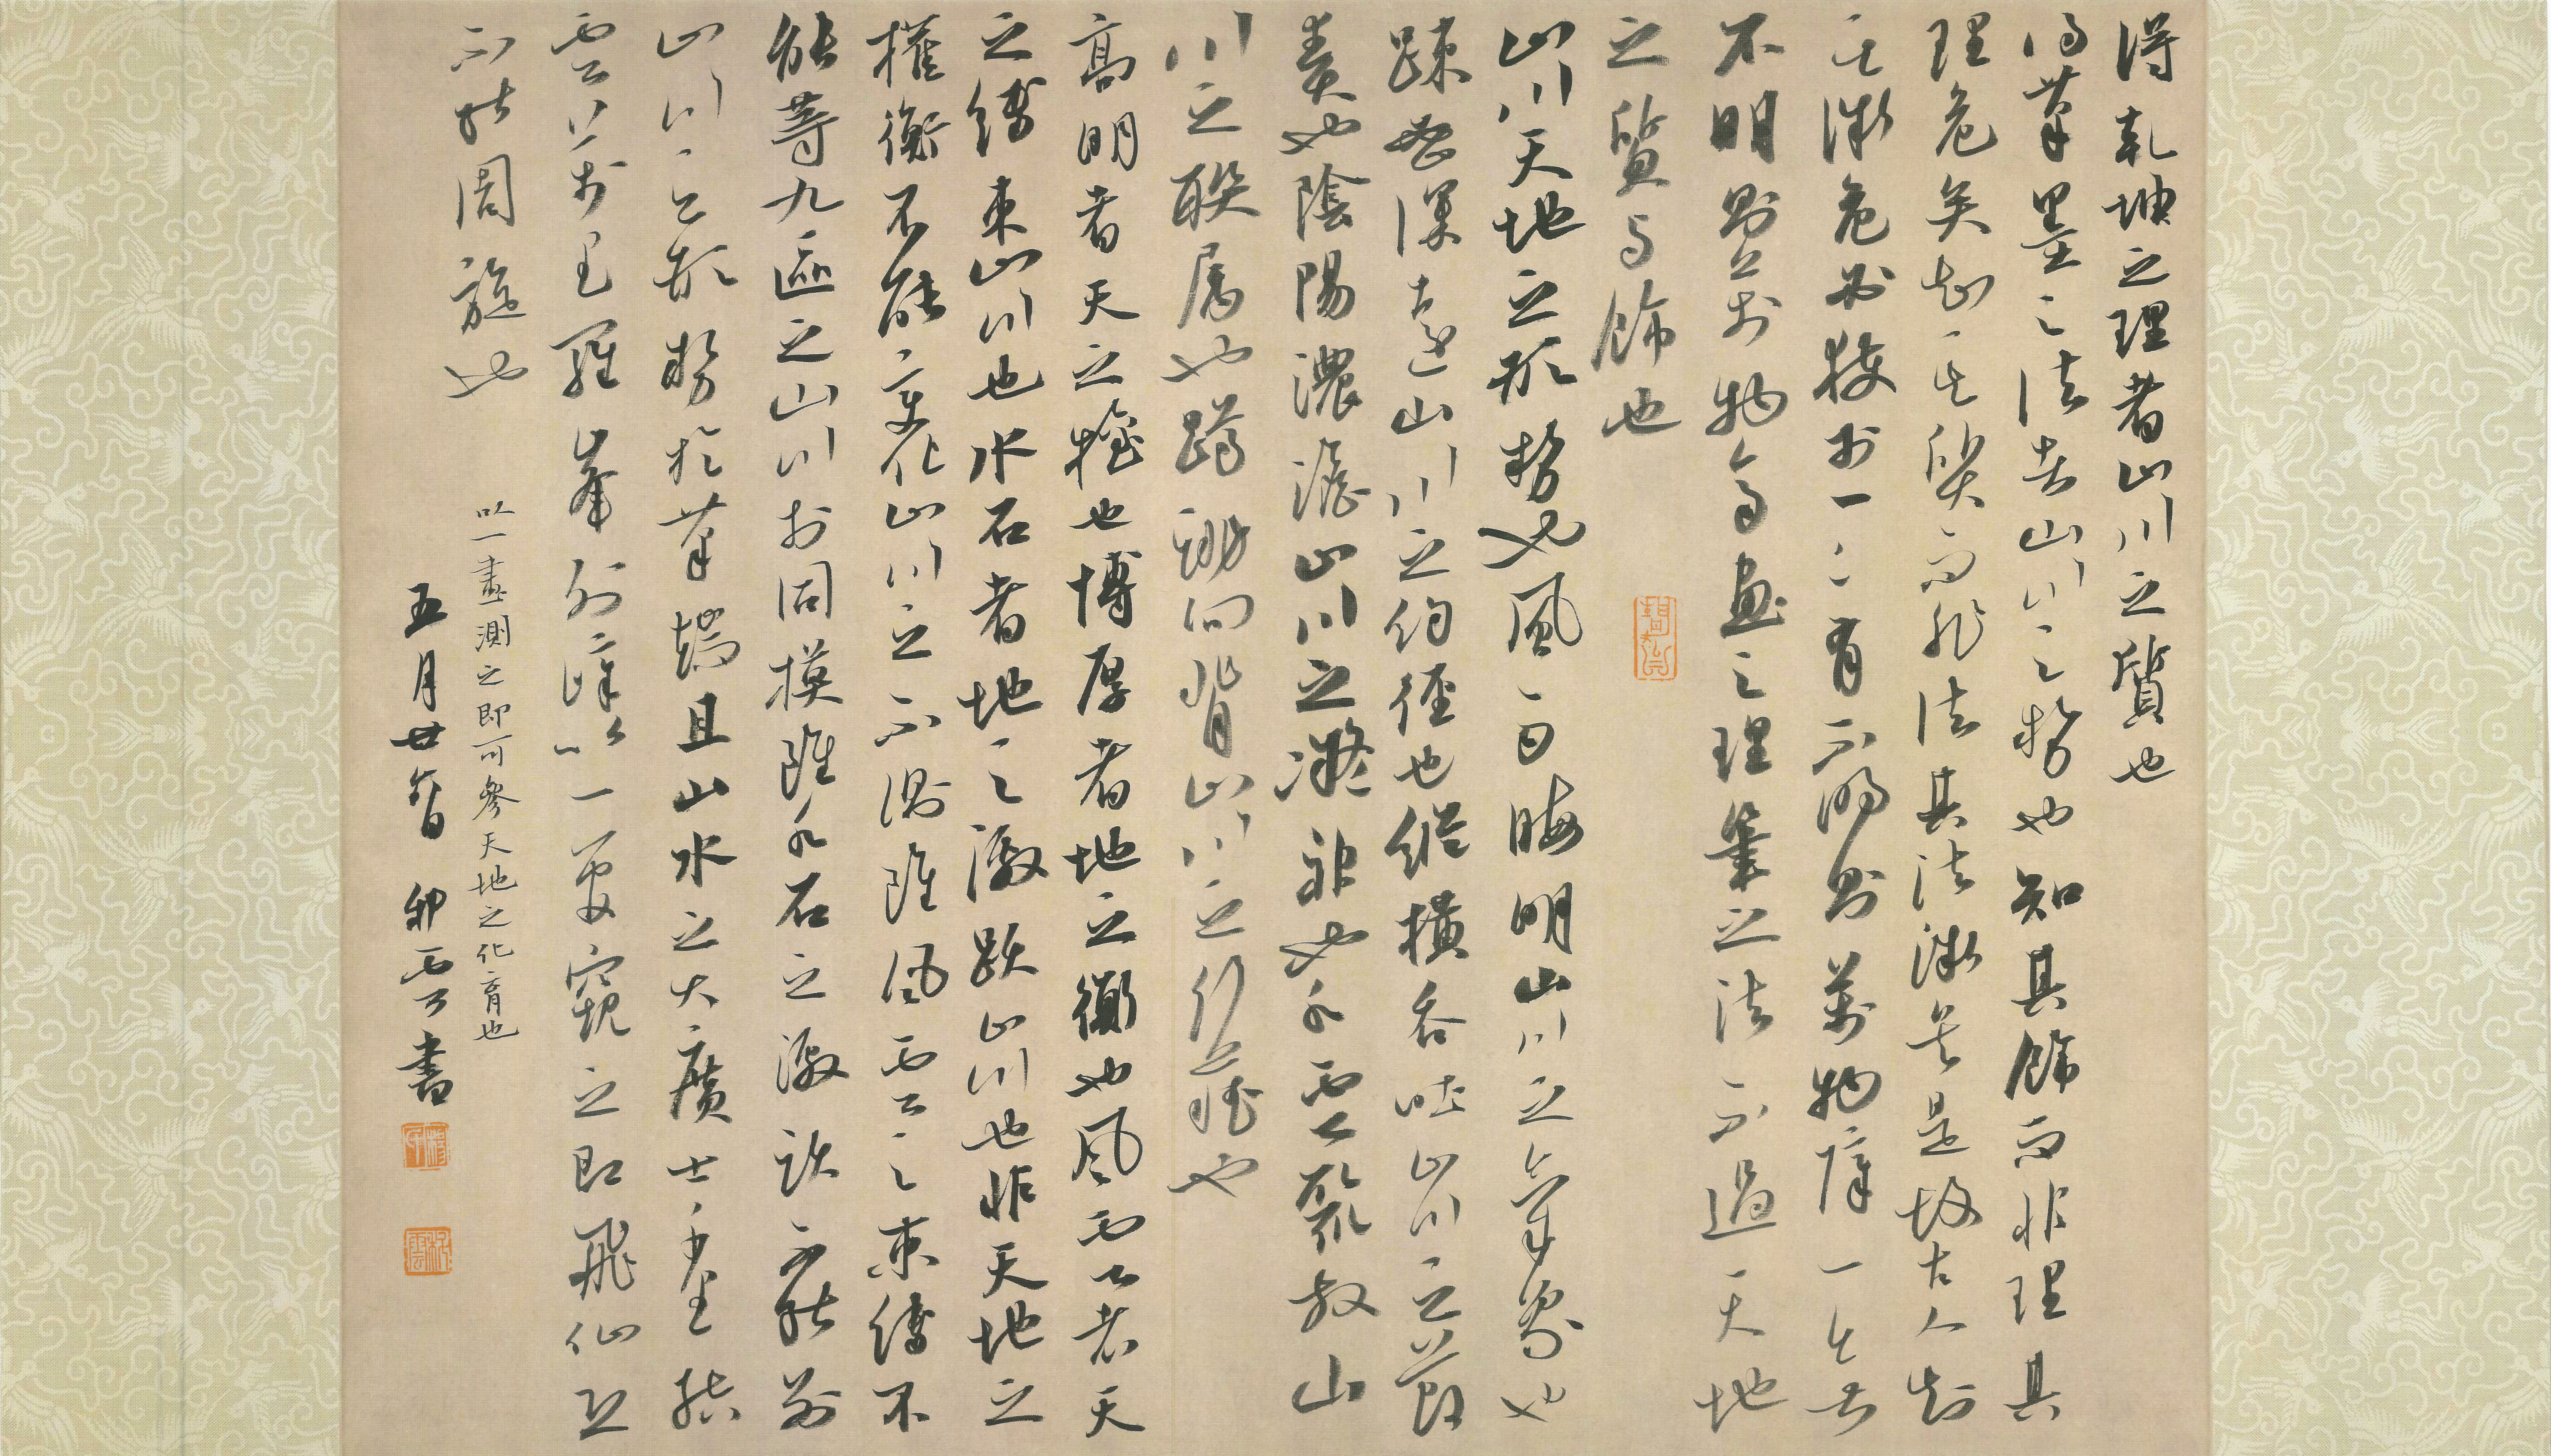 得乾坤之理者山川之質也
得筆墨之法者山川之勢也知其飾而非理其
理危矣知其質而非法其法微矣是故古人知
其微危必獲於一一有不明則萬物障一無
不明則萬物齊畫之理筆之法不過天地
之質與飾也
山川天地之形勢也風雨晦明山川之氣象也
疎密深遠山川之約徑也縱橫吞吐山川之節
奏也陰陽濃淡山川之凝神也水雲聚散山
川之聯屬也蹲跳向背山川之行藏也
高明者天之權也博厚者地之衡也風雲者天
之縛束山川也水石者地之激躍山川也非天地之
權衡不能變化山川之不測雖風雲之束縛不
能等九區之山川於同模雖水石之激躍不能別
山川之形勢於筆端且山水之大廣土千里結
雲萬里羅峯列嶂以一管窺之即飛仙恐
不能周旋也
以一畫測之即可參天地之化育也
五月廿 雲書